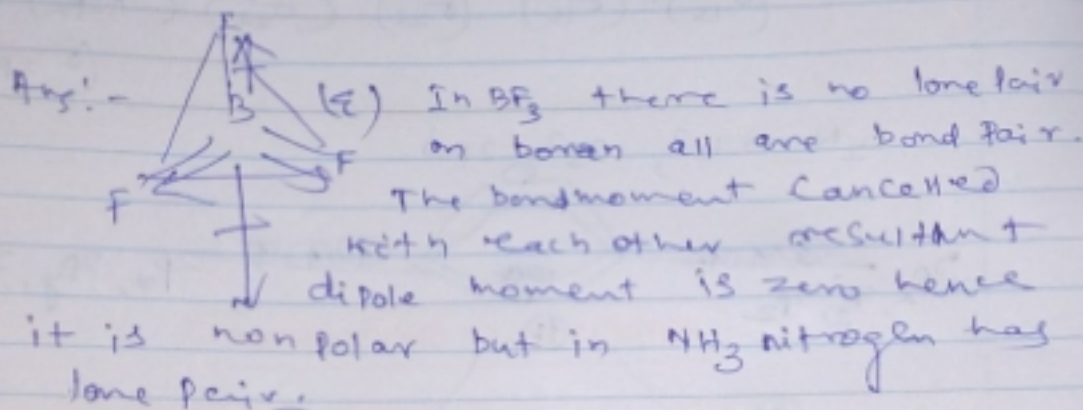 F
Ans:- B (ε) In BF3 there is no lone pair
on boron all are bond Pair.
F F The bondmoment Cancelled
with each other resultant
dipole moment is zero hence
it is non polar but in NH3 nitrogen has
lone pair.